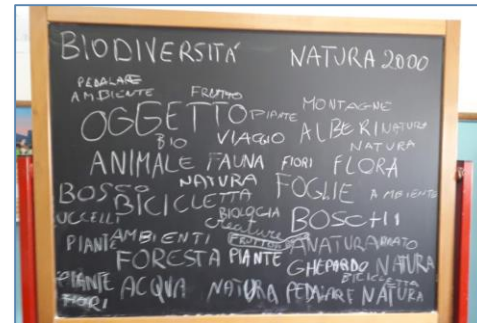 BIODIVERSITÁ NATURA 2000
PEDALARE
AMBIENTE FRUTTO MONTAGNE
OGGETTO PIANTE ALBERI NATURA
BIO VIAGGIO NATURA
ANIMALE FAUNA FIORI FLORA
NATURA FOGLIE AMBIENTE
BOSCO BICICLETTA
UCCELLI BIOLOGIA BOSCHI
creature
PIANTE AMBIENTI FRUTTO NATURA
FORESTA PIANTE GHEPARDO NATURA
BICICLETTA
PIANTE ACQUA NATURA PEDALARE NATURA
FIORI